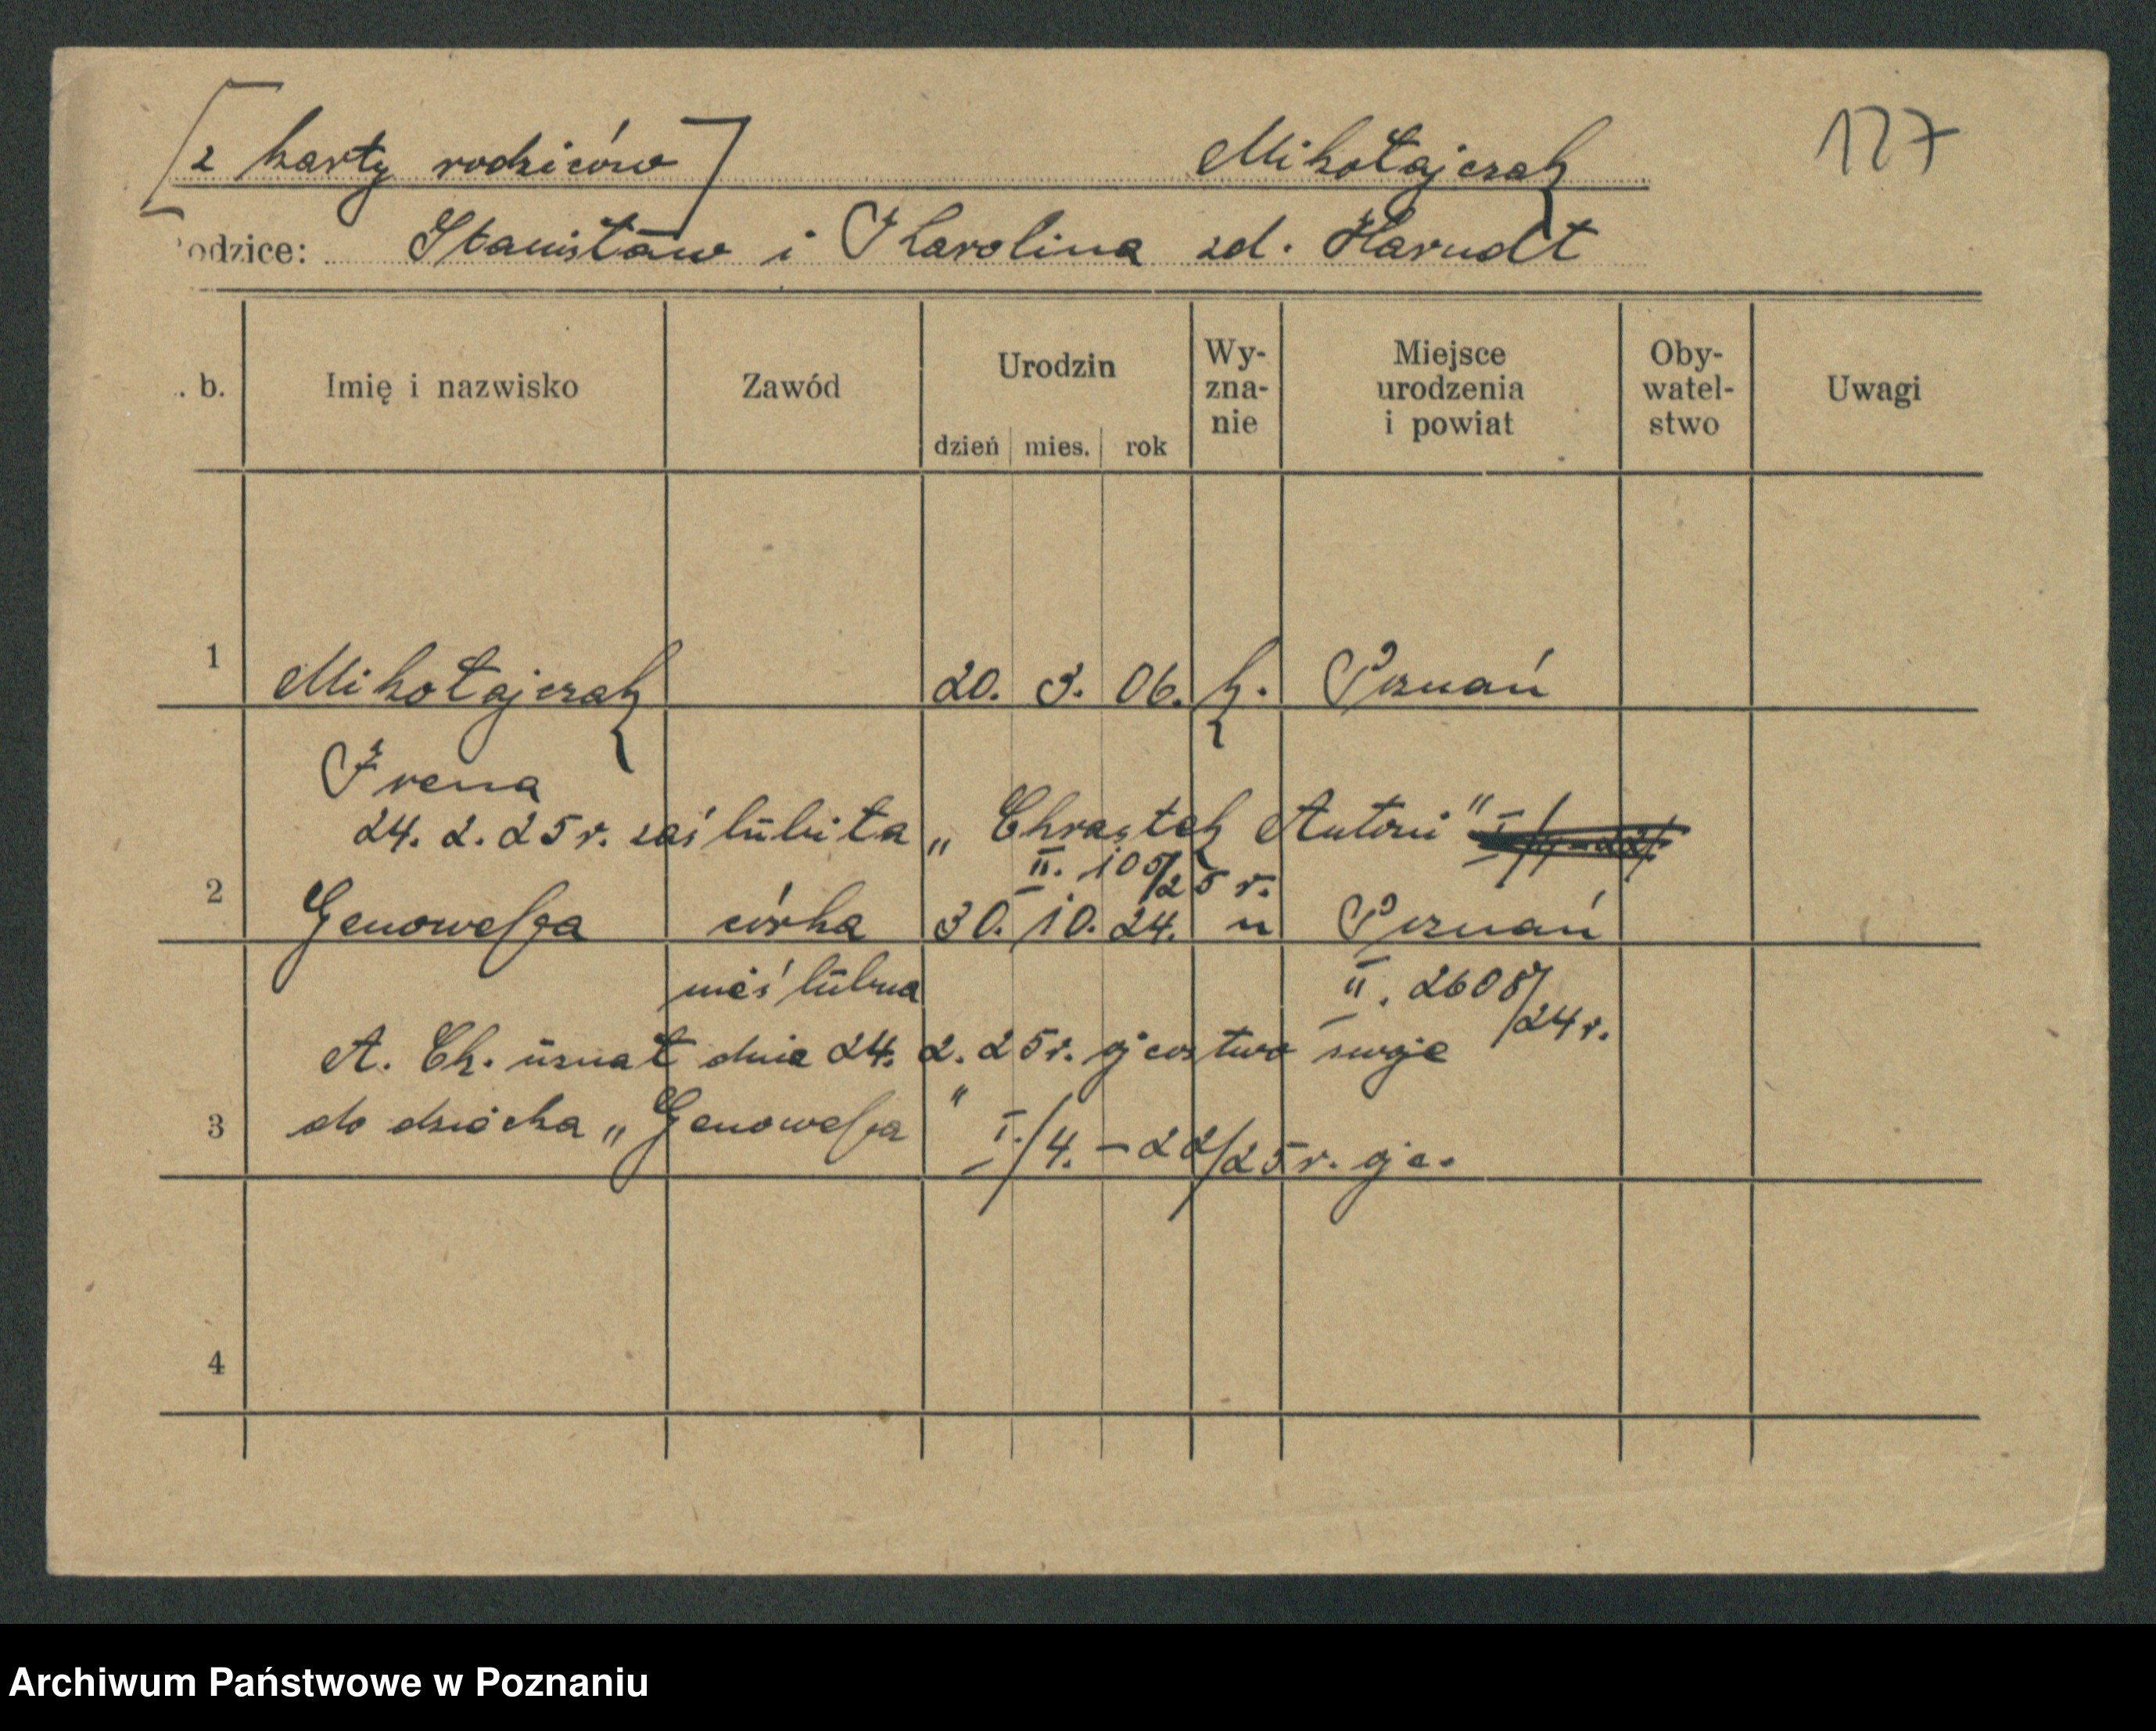 [z karty rodziców] Mikołajczak 127
odzice: Stanisław i Karolina zd. Harndt
. b. Imię i nazwisko Zawód Urodzin dzień mies. rok Wy-zna-nie Miejsce urodzenia i powiat Oby-watel-stwo Uwagi
1 Mikołajczak 20. 3. 06. k. Poznań
Irena
24. 2. 25 r. zaślubiła „Chrząstek Antoni"
II. 105/25 r.
2 Genowefa córka 30. 10. 24. " Poznań
nieślubna II. 2608/24 r.
A. Ch. uznał dnia 24. 2. 25 r. ojcostwo swoje
3 do dziecka „Genowefa" I./4. – 22/25 r. oje.
4
Archiwum Państwowe w Poznaniu